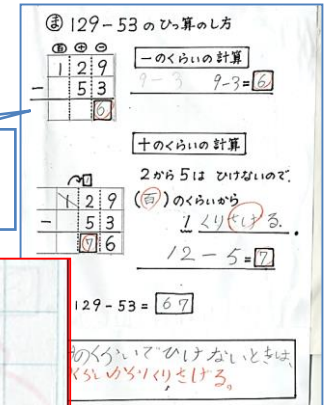 ま 129-53 のひっ算のし方
百 十 一
1 2 9
- 5 3
6
一のくらいの計算
9-3 9-3=6
十のくらいの計算
2から5は ひけないので、
(百)のくらいから
1 くりさげる。
12-5=7
1 2 9
- 5 3
7 6
129-53=67
のくらいでひけないときは、
くらいから1くりさげる。